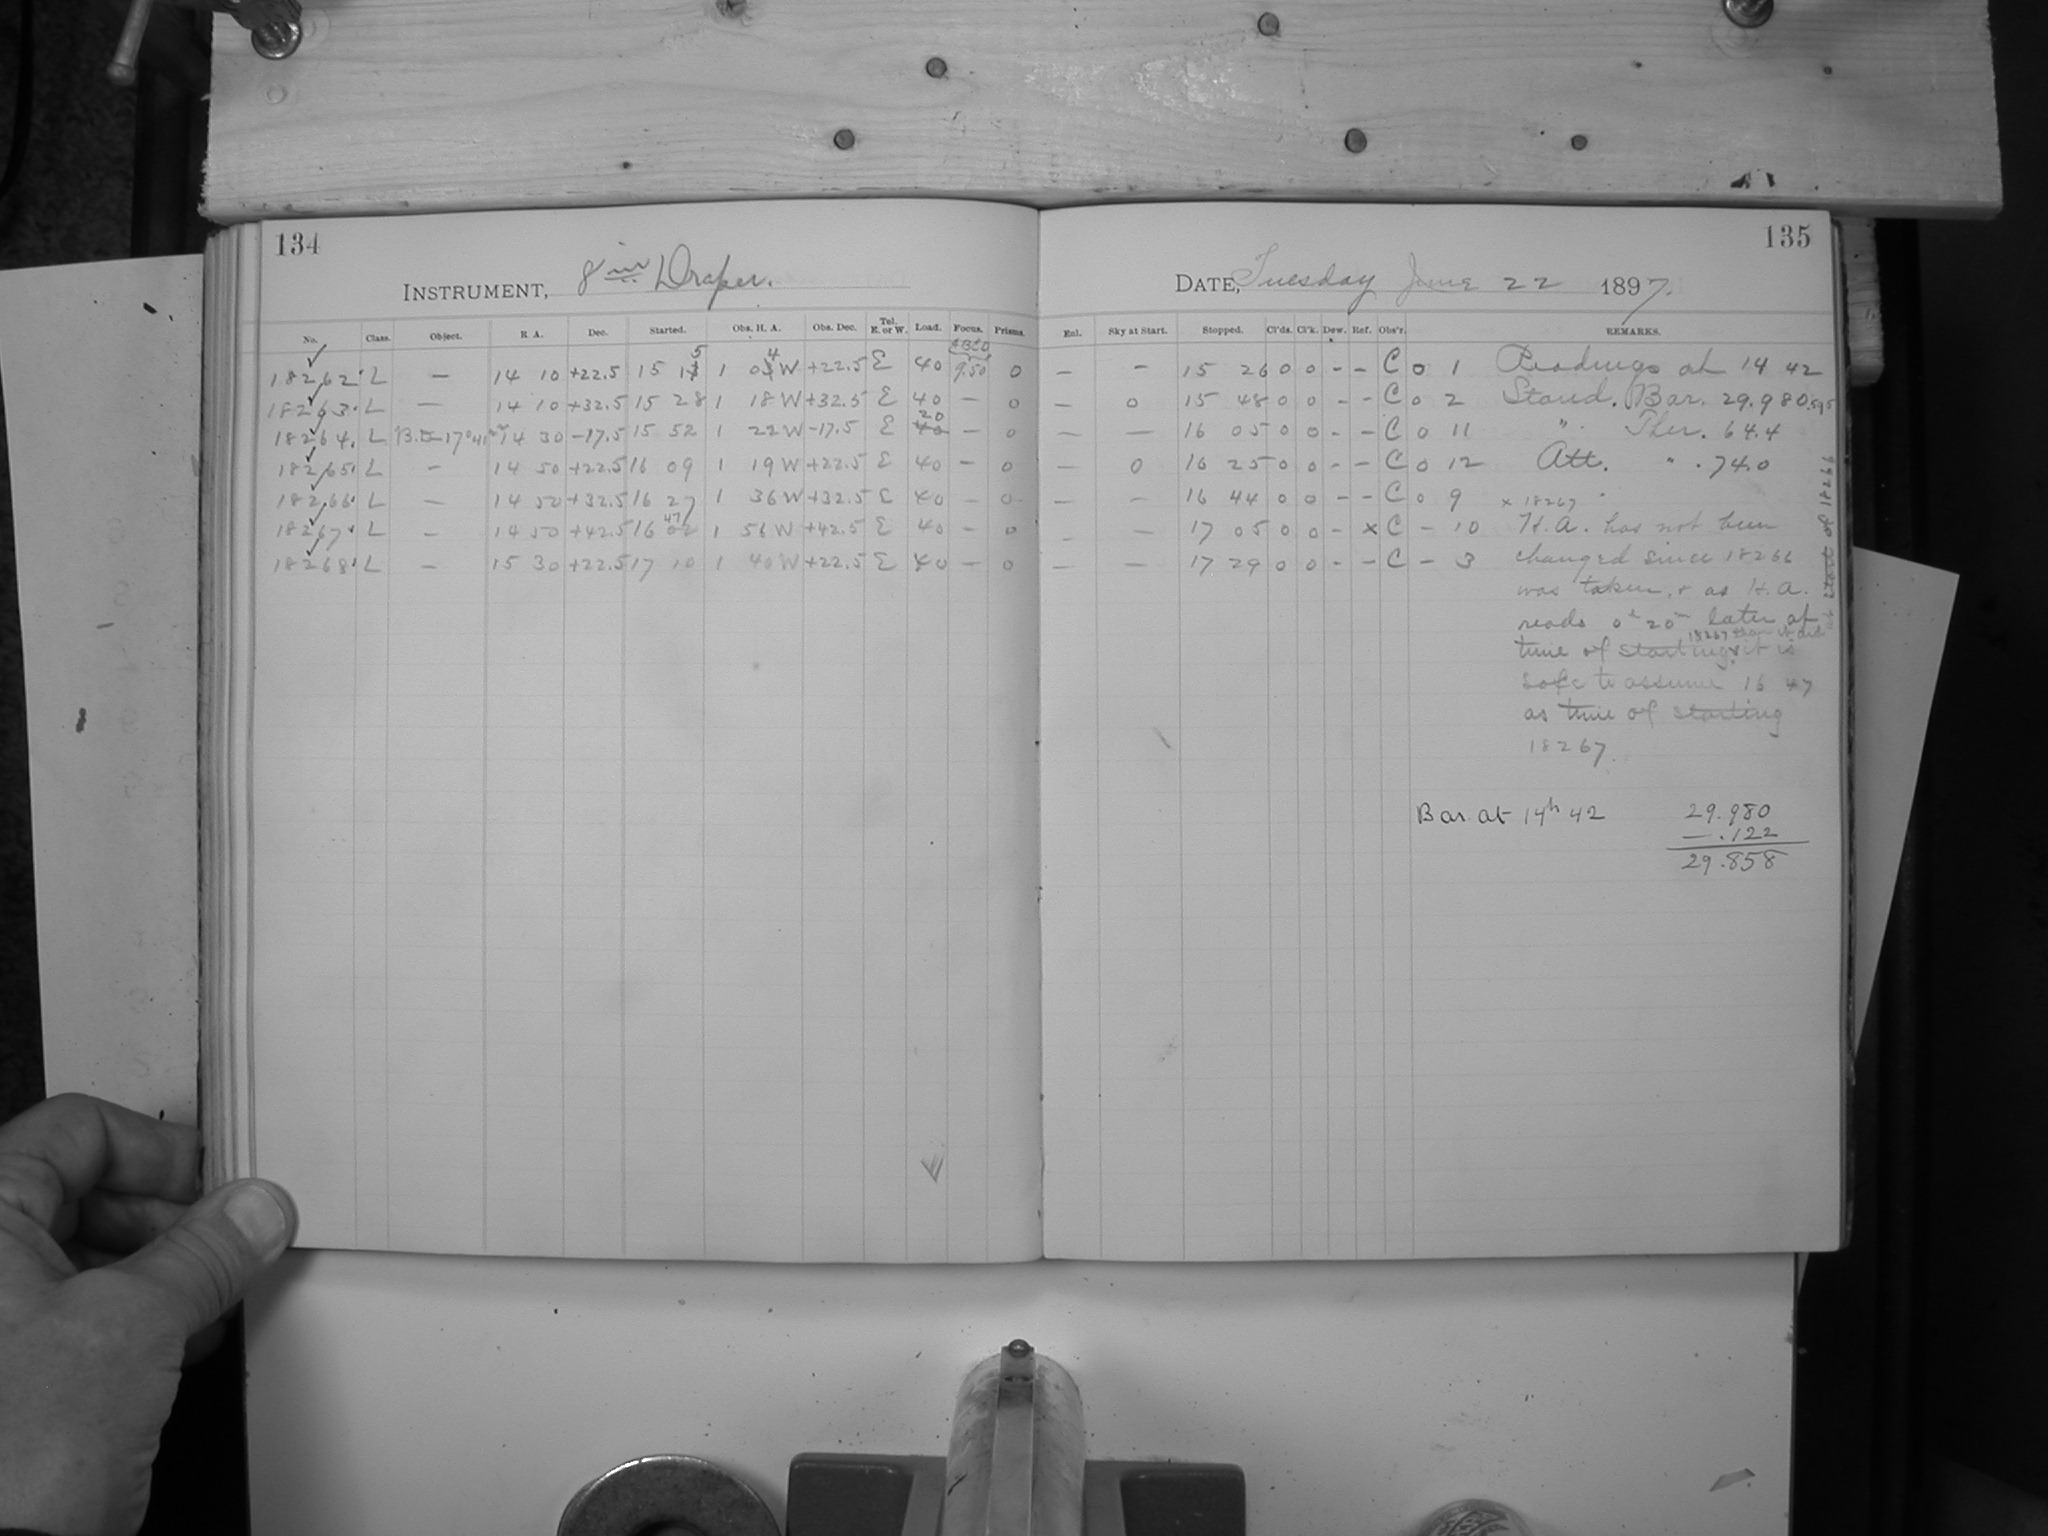 134
INSTRUMENT, 8 in Draper.
No. Class. Object. R. A. Dec. Started. Obs. H. A. Obs. Dec. Tel. E. or W. Load. Focus. Prisms.
18262 L — 14 10 +22.5 15 15 1 04 W +22.5 E 40 9.50 0
18263 L — 14 10 +32.5 15 28 1 18 W +32.5 E 40 — 0
18264 L 14 30 -17.5 15 52 1 22 W -17.5 E 20 — 0
18265 L — 14 50 +22.5 16 09 1 19 W +22.5 E 40 — 0
18266 L — 14 50 +32.5 16 27 1 36 W +32.5 E 40 — 0
18267 L — 14 50 +42.5 16 47 1 56 W +42.5 E 40 — 0
18268 L — 15 30 +22.5 17 10 1 40 W +22.5 E 40 — 0
135
DATE, Tuesday June 22 1897.
Enl. Sky at Start. Stopped. Cl'ds. Cl'k. Dew. Ref. Obs'r. REMARKS.
— — 15 26 0 0 - - C 0 1 Readings at 14 42
— 0 15 48 0 0 - - C 0 2 Stand. Bar. 29.980
— — 16 05 0 0 - - C 0 11 " Ther. 64.4
— 0 16 25 0 0 - - C 0 12 Att. " 74.0
— — 16 44 0 0 - - C 0 9 x 18267
— — 17 05 0 0 - x C - 10 H.A. has not been
— — 17 29 0 0 - - C - 3 changed since 18266
was taken, & as H.A.
reads 0h 20m later at
18267 than it did
time of starting it is
safe to assume 16 47
as time of starting
18267.
at start of 18266
Bar. at 14h 42 29.980
— .122
29.858